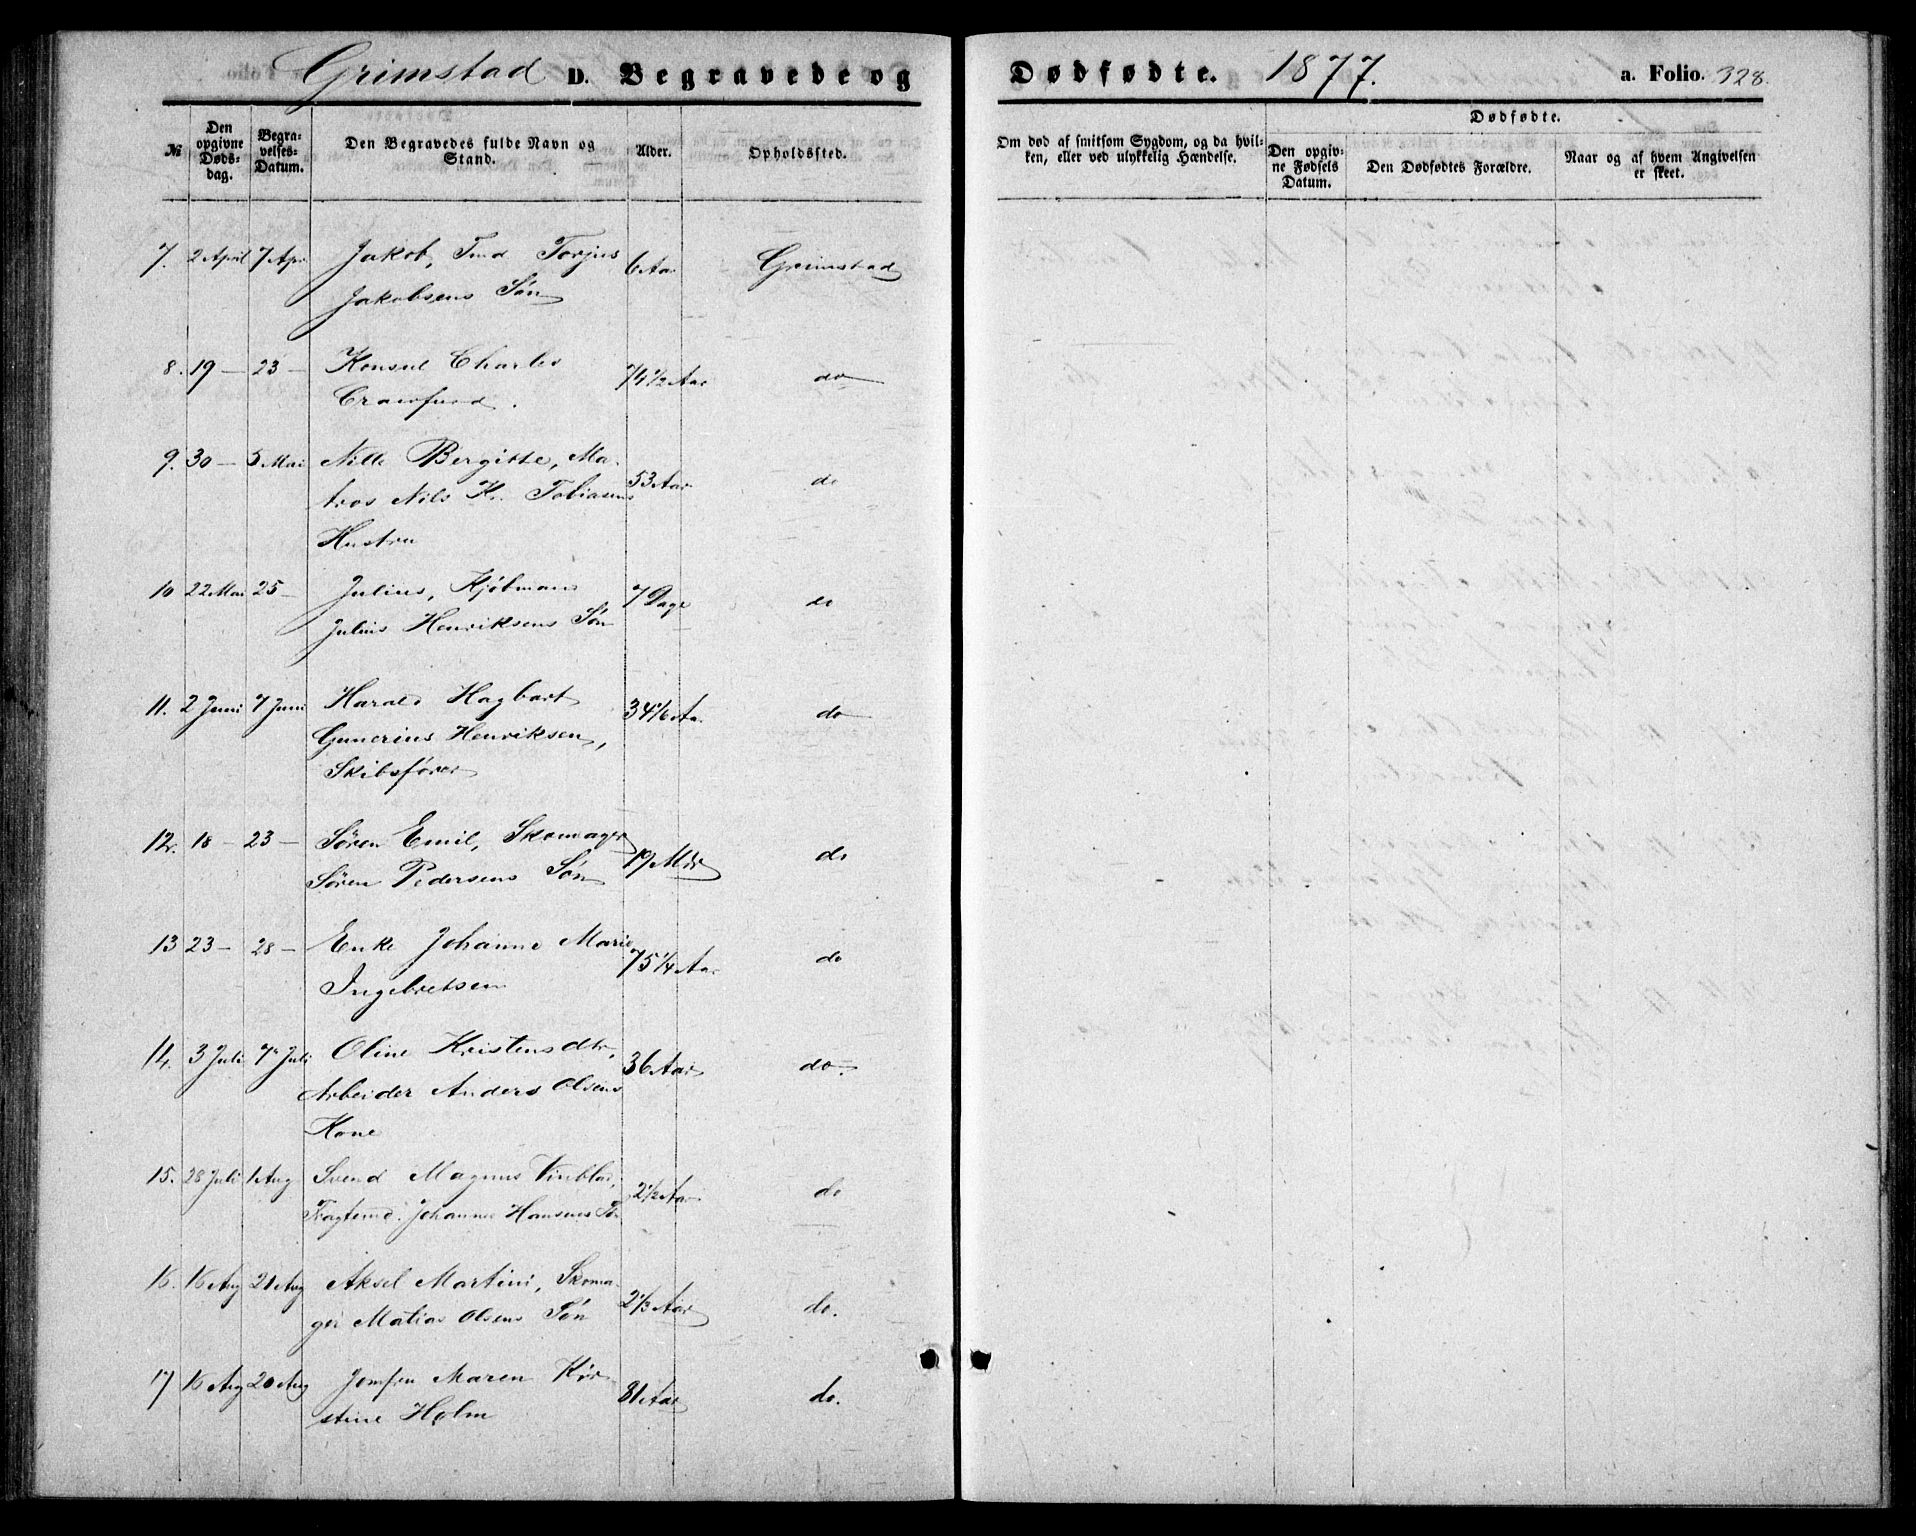 Grimstad D. Begravede og Dødfødte. 1877. a. Folio. 328.
№ Den opgivne Dødsdag. Begravelses-Datum. Den Begravedes fulde Navn og Stand. Alder. Opholdssted. Om død af smitsom Sygdom, og da hvilken, eller ved ulykkelig Hændelse. Dødfødte. Den opgivne Fødsels Datum. Den Dødfødtes Forældre. Naar og af hvem Angivelsen er skeet.
7. 2 April 7 Apr Jakob, Tmd Torjus 6 Aar Grimstad
Jakobsens Søn
8. 19 — 23 — Konsul Charles 74 1/2 Aar do
Crawfurd.
9. 30 — 5 Mai Nille Bergitte, Ma- 53 Aar do
tros Nils Kr. Tobiasens
Hustru
10 22 Mai 25 — Julius, Kjøbmand 7 Dage do
Julius Henriksens Søn
11. 2 Juni 7 Juni Harald Hagbart 34 1/6 Aa. do
Gunerius Henriksen,
Skibsfører
12. 18 — 23 — Søren Emil, Skomager 19 Mdr do
Søren Pedersens Søn
13 23 — 28 — Enke Johanne Marie 75 1/4 Aar do
Ingebretsen
14. 3 Juli 7 Juli Oline Kristensdtr, 36 Aar do.
Arbeider Anders Olsens
Kone
15. 28 Juli 1 Aug Svend Magnus Vinblad, 2 1/2 Aar do
Johannes Hansens Sø
16. 16 Aug 21 Aug Aksel Martini, Skoma- 2 1/3 Aar do.
ger Matias Olsens Søn
17 16 Aug 20 Aug Jomfru Maren Kir- 81 Aar do.
stine Holm